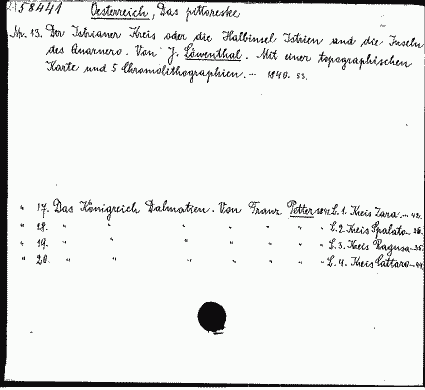 58441 Oesterreich, Das pittoreske
Nr. 13. Der Istrianer Kreis oder die Halbinsel Istrien und die Inseln
des Quarnero. Von J. Löwenthal. Mit einer topographischen
Karte und 5 Chromolithographien. — 1840. 53.
" 17. Das Königreich Dalmatien. Von Franz Petter 1841 L. 1. Kreis Zara. — 42.
" 18. " " " " " " " L. 2. Kreis Spalato —
" 19. " " " " " " " L. 3. Kreis Ragusa —
" 20. " " " " " " " L. 4. Kreis Cattaro —